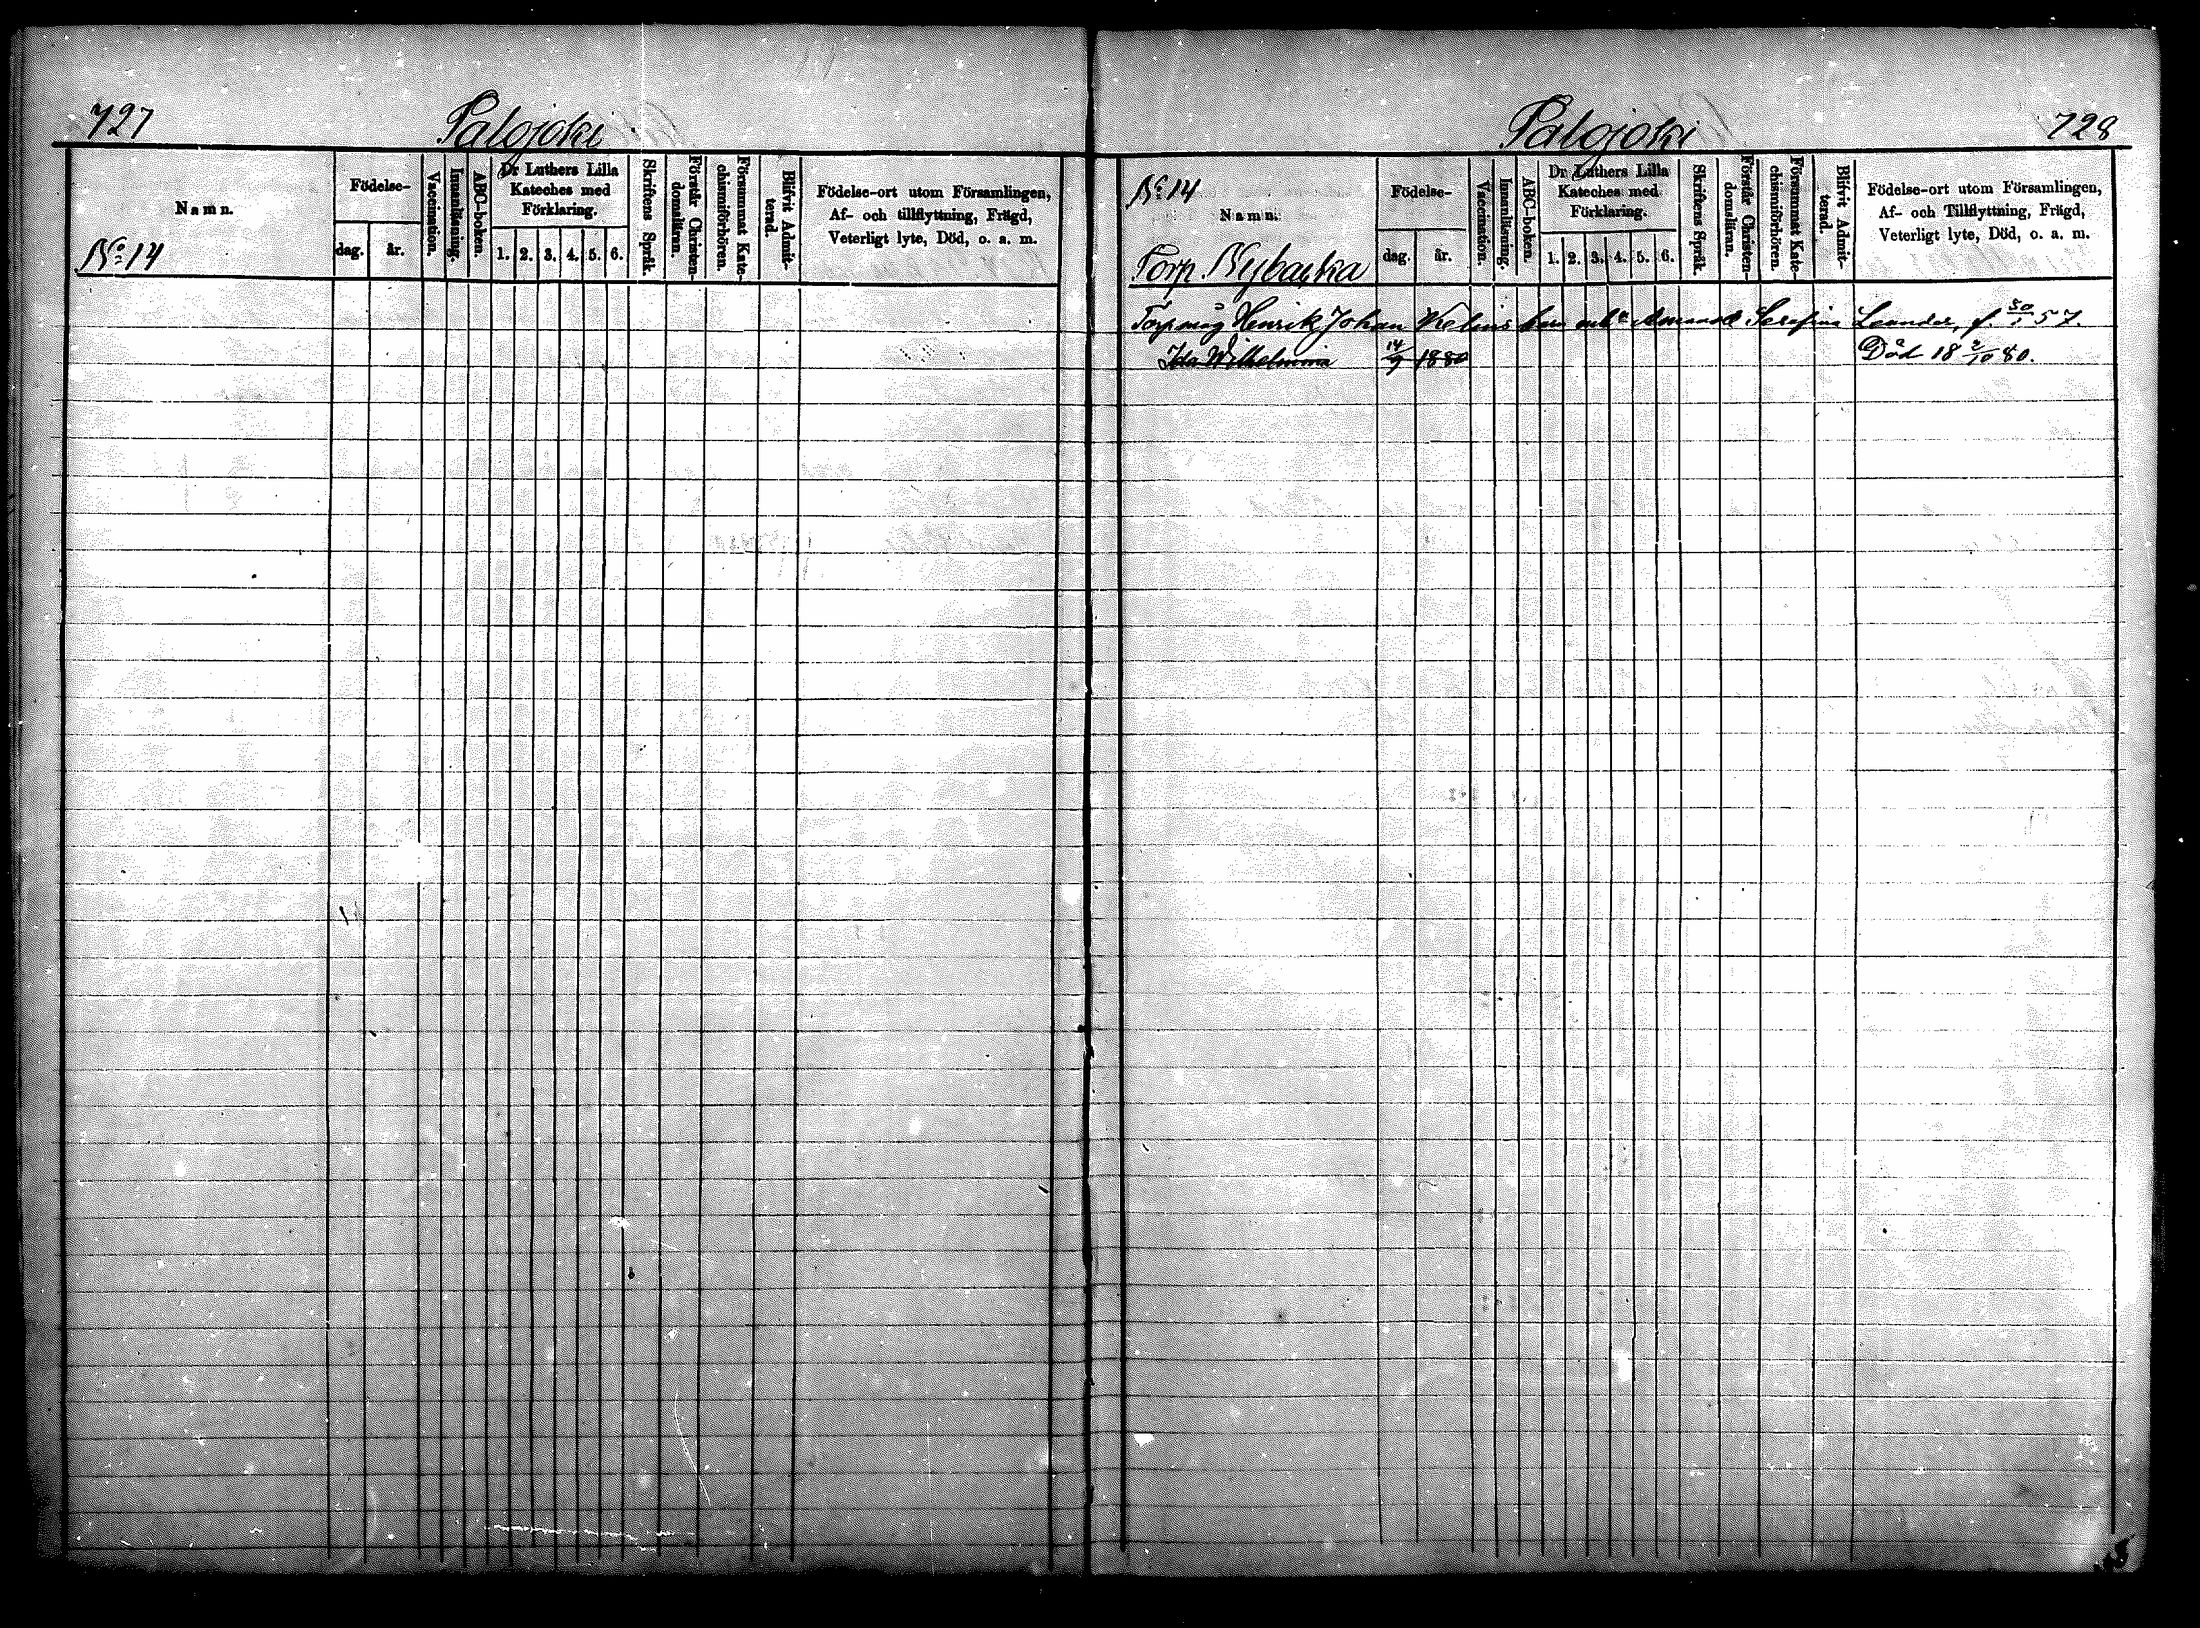 727
Palojoki
Namn.
No 14
Födelse-
dag.
år.
Vaccination.
Innanläsning.
ABC-boken.
Dr Luthers Lilla
Kateches med
Förklaring.
1. 2. 3. 4. 5. 6.
Skriftens Språk.
Förstår Christen-
domsläran.
Försummat Kate-
chismiförhören.
Blifvit Admit-
terad.
Födelse-ort utom Församlingen,
Af- och tillflyttning, Frägd,
Veterligt lyte, Död, o. a. m.
Palojoki
728
No 14
Namn.
Torp. Nybacka
Födelse-
dag.
år.
Vaccination.
Innanläsning.
ABC-boken.
Dr Luthers Lilla
Kateches med
Förklaring.
1. 2. 3. 4. 5. 6.
Skriftens Språk.
Förstår Christen-
domsläran.
Försummat Kate-
chismiförhören.
Blifvit Admit-
terad.
Födelse-ort utom Församlingen,
Af- och Tillflyttning, Frägd,
Veterligt lyte, Död, o. a. m.
Torp. måg Henrik Johan Serafina Leander, f. 57.
Ida Wilhelmina 14/9 1880 Död 18 2/10 80.